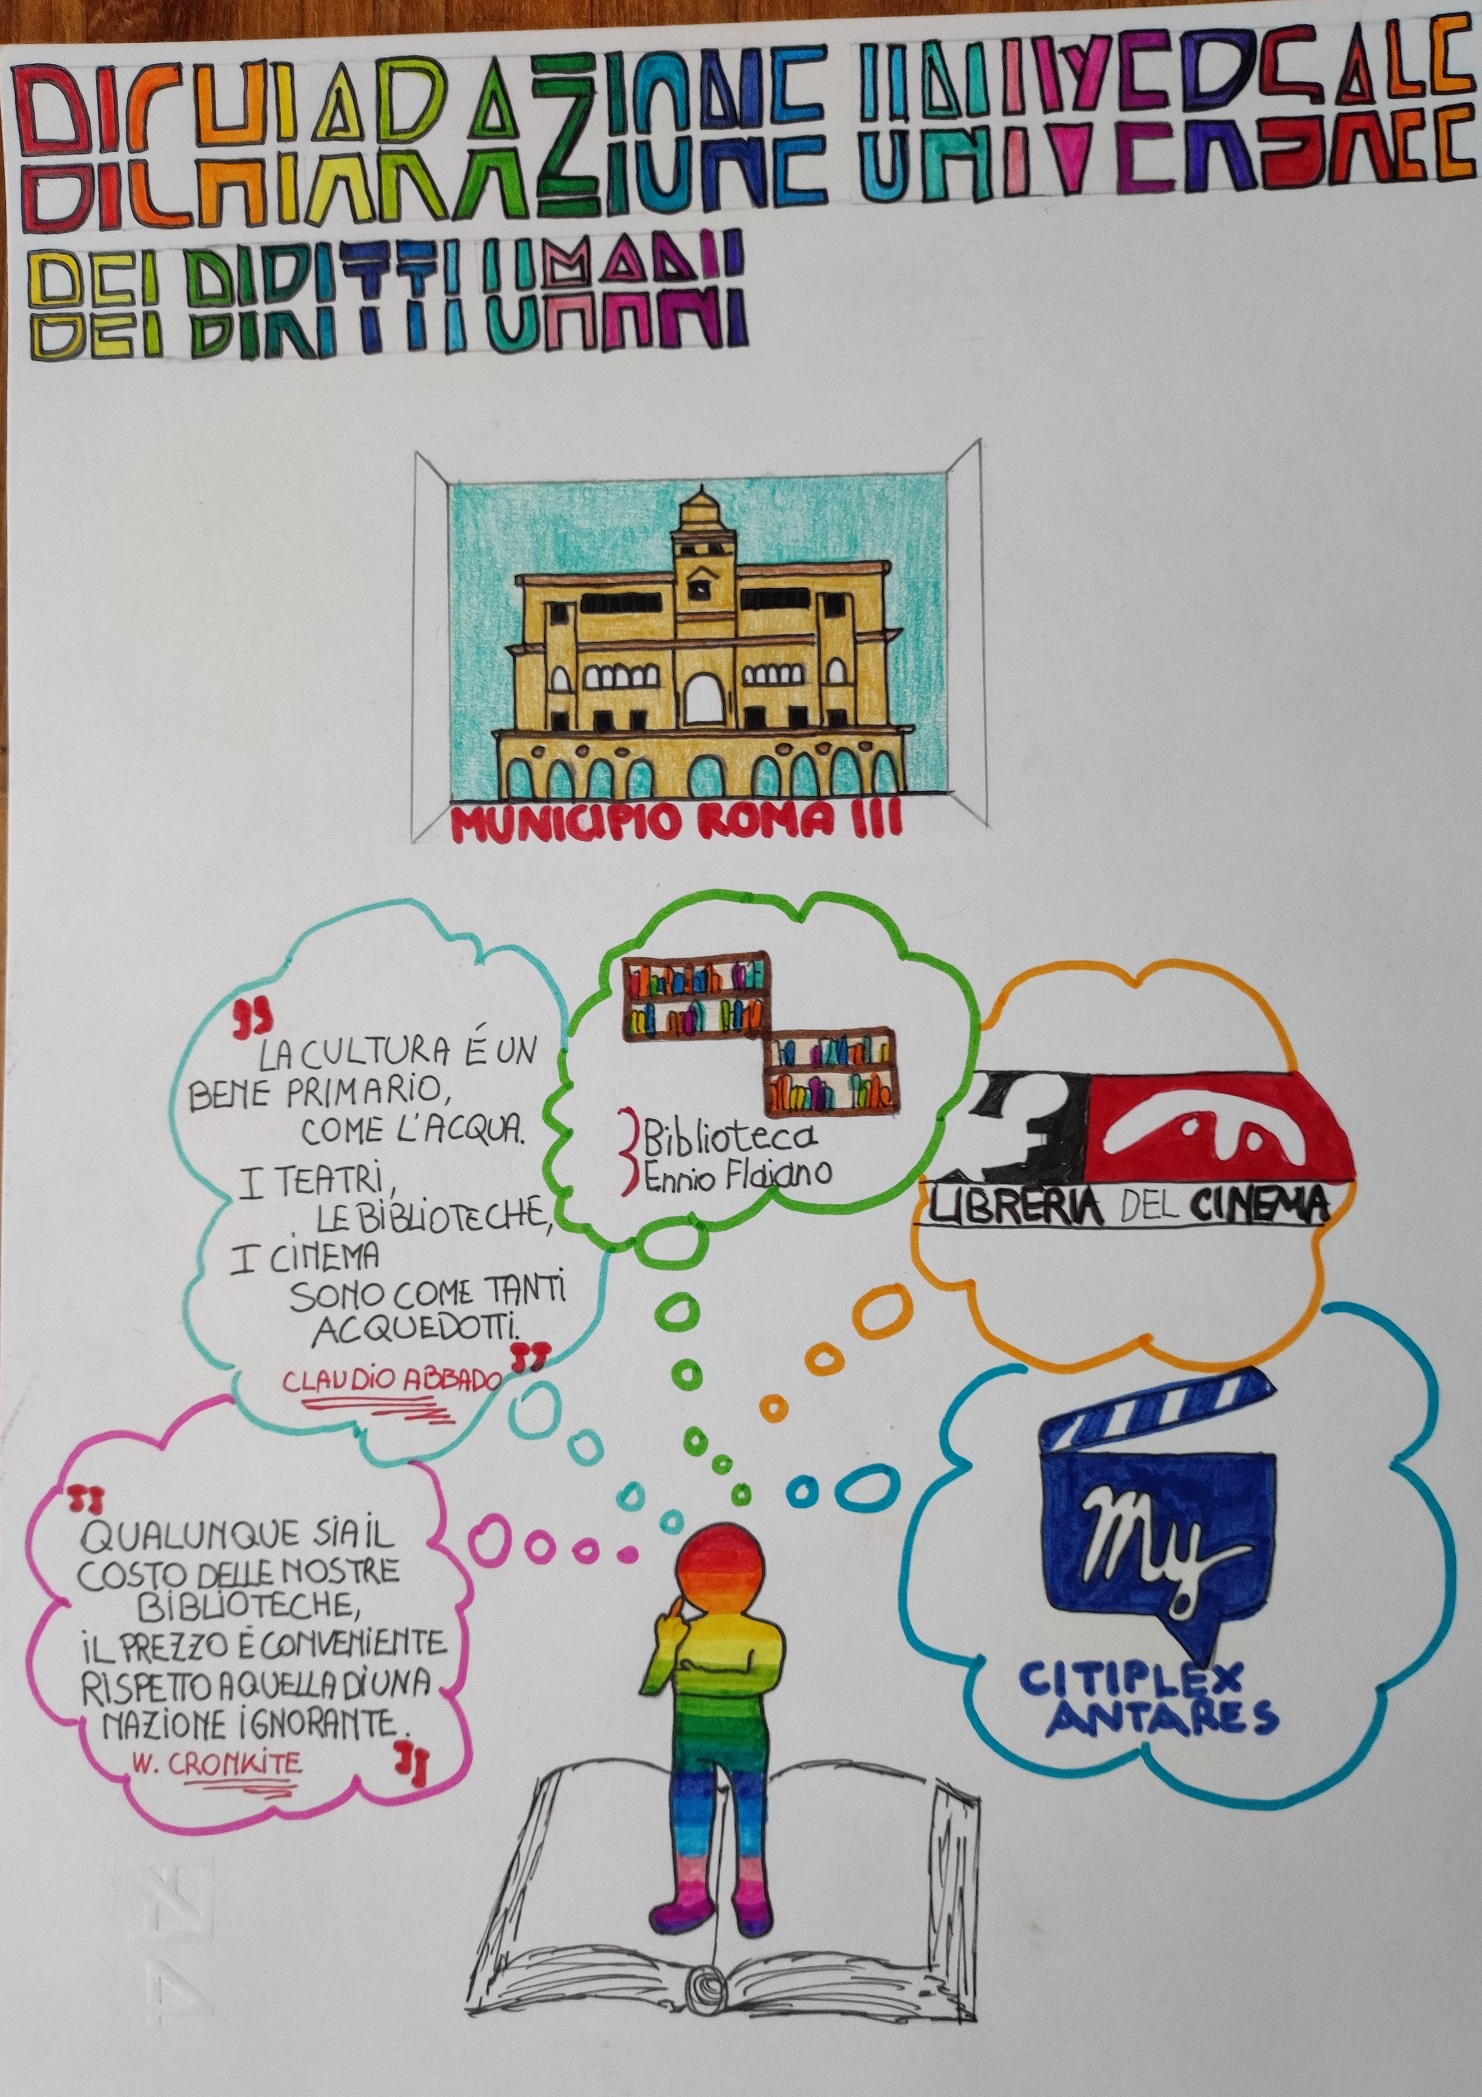 DICHIARAZIONE UNIVERSALE
DEI DIRITTI UMANI
MUNICIPIO ROMA III
LA CULTURA É UN
BENE PRIMARIO,
COME L'ACQUA.
I TEATRI,
LE BIBLIOTECHE,
I CINEMA
SONO COME TANTI
ACQUEDOTTI.
CLAUDIO ABBADO
Biblioteca
Ennio Flaiano
LIBRERIA DEL CINEMA
My
CITIPLEX
ANTARES
QUALUNQUE SIA IL
COSTO DELLE NOSTRE
BIBLIOTECHE,
IL PREZZO É CONVENIENTE
RISPETTO A QUELLA DI UNA
NAZIONE IGNORANTE.
W. CRONKITE